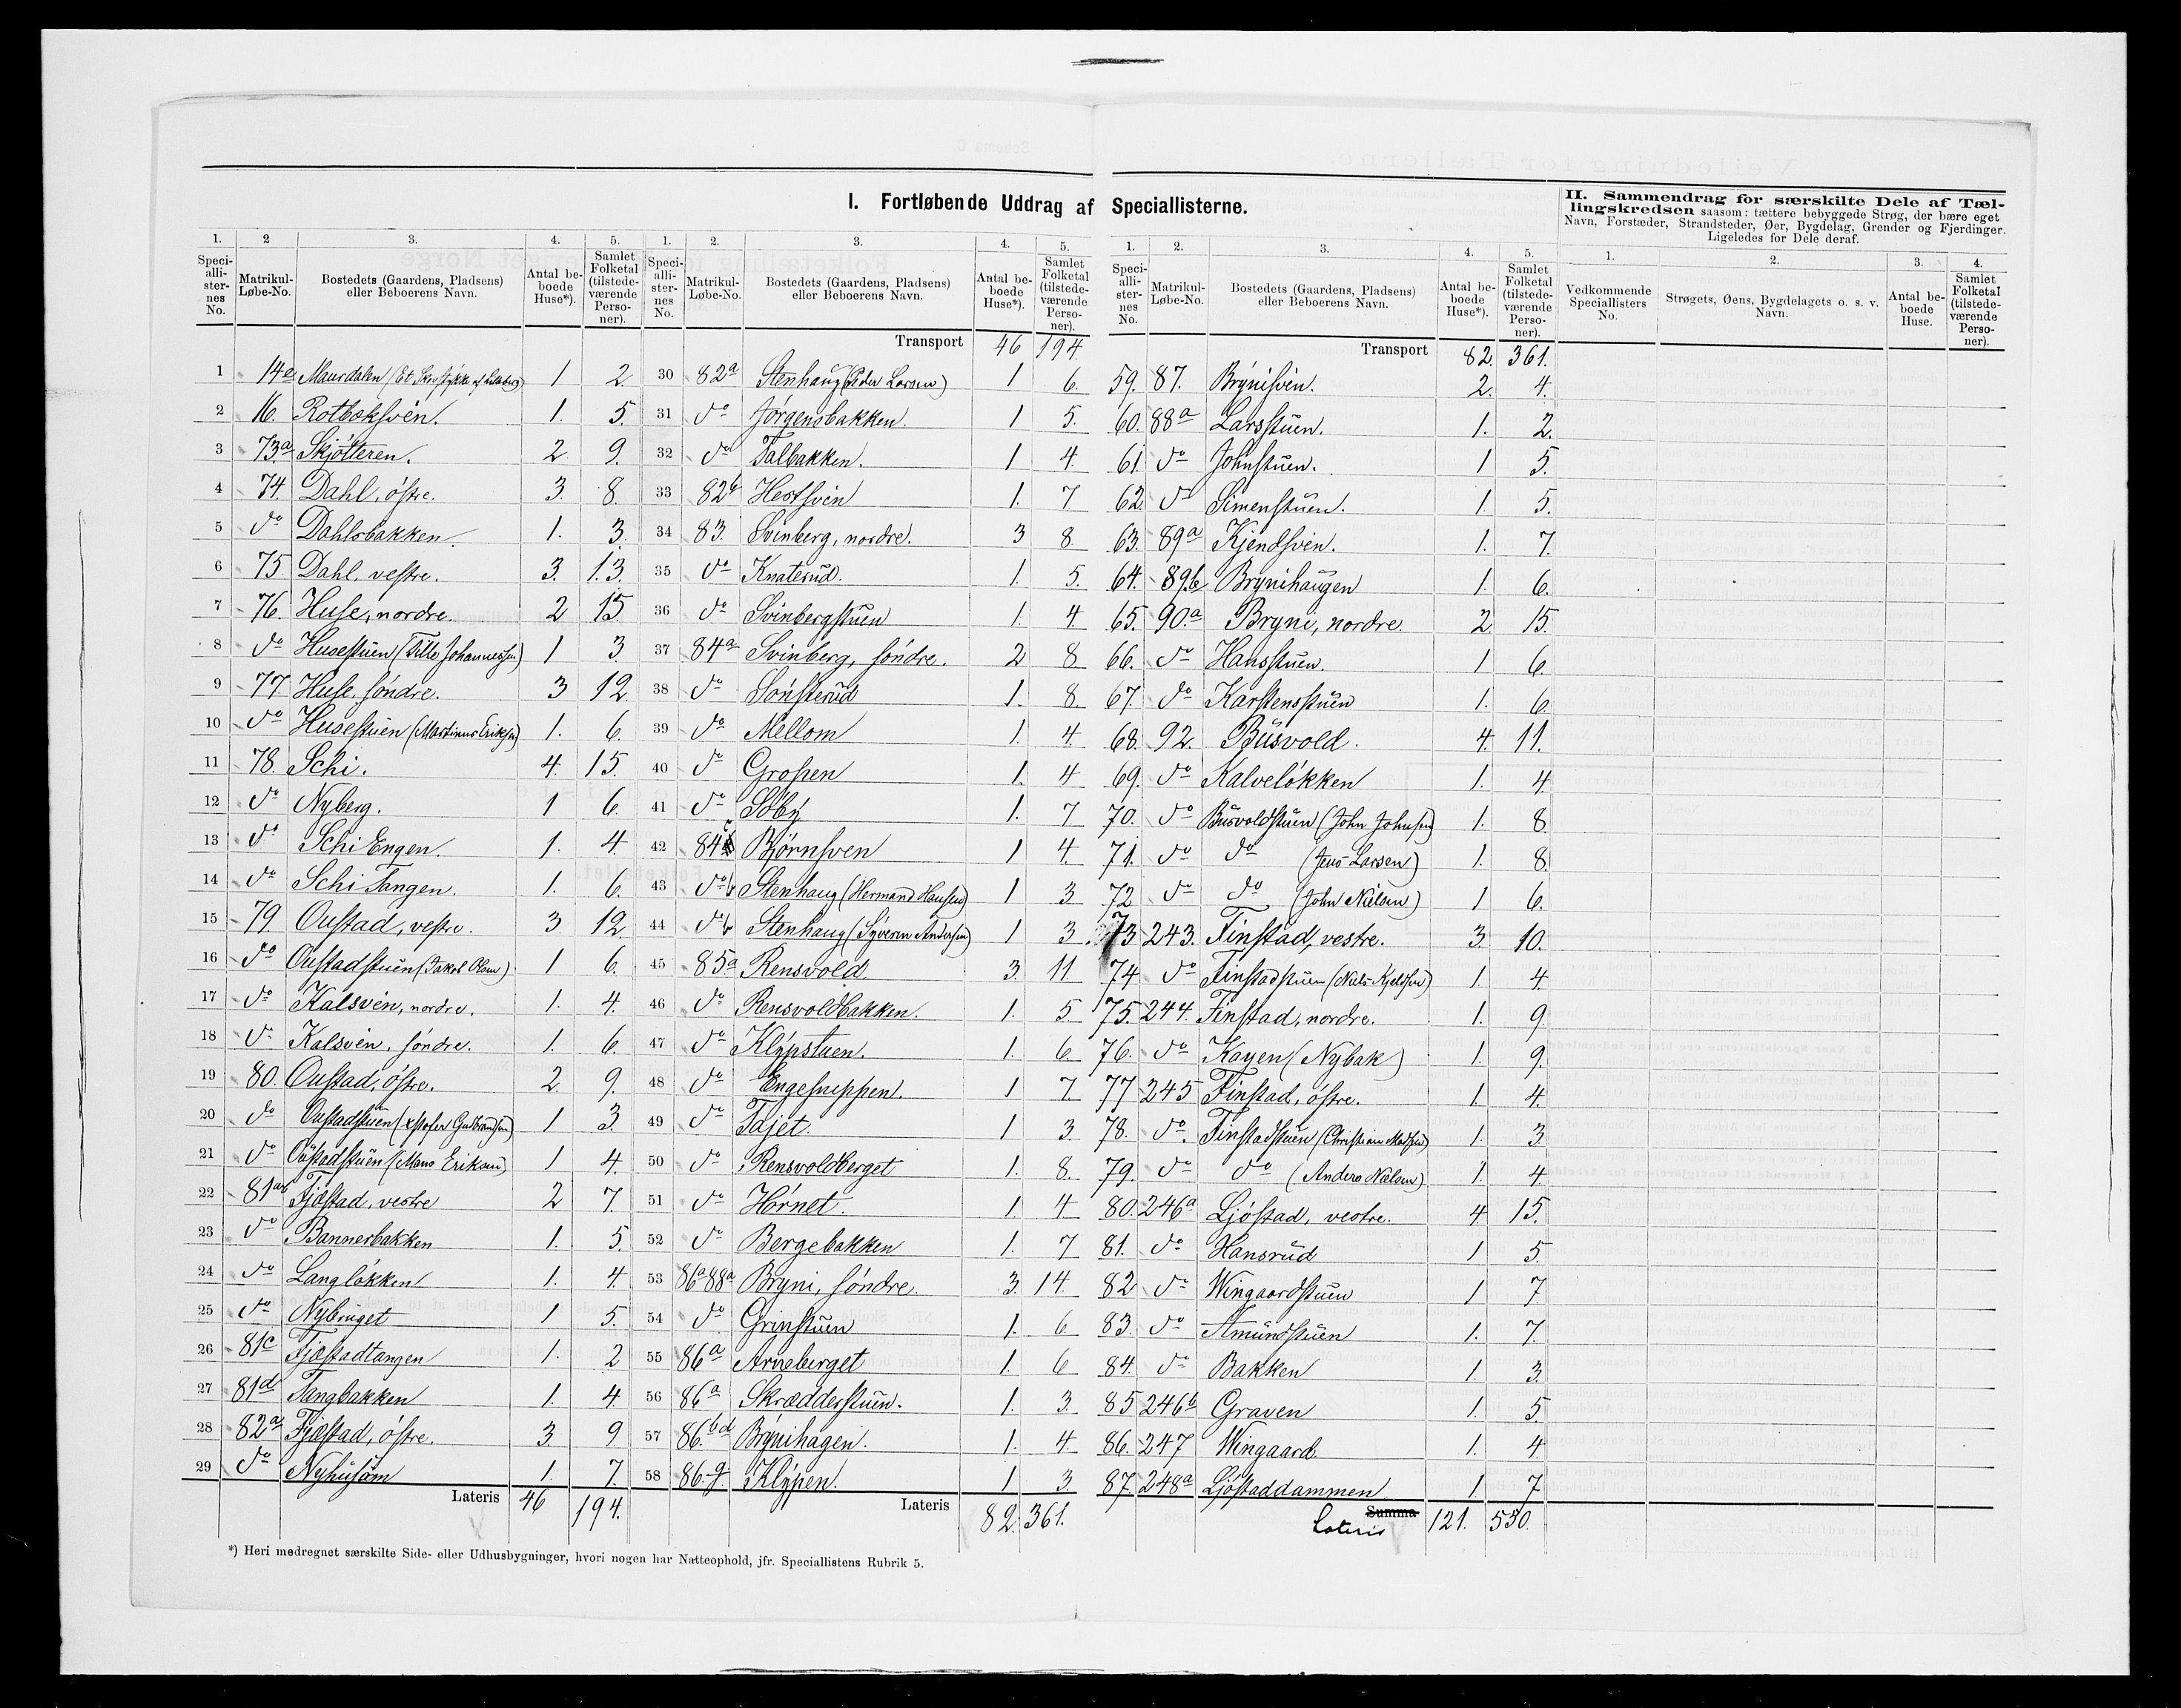 I. Fortløbende Uddrag af Speciallisterne.
II. Sammendrag for særskilte Dele af Tæl-
lingskredsen saasom: tættere bebyggede Strøg, der bære eget
Navn, Forstæder, Strandsteder, Øer, Bygdelag, Grender og Fjerdinger.
Ligeledes for Dele deraf.
1. 2 3. 4. 5.
Speci-alli-ster-nes No. Matrikul-Løbe-No. Bostedets (Gaardens, Pladsens) eller Beboerens Navn. Antal be-boede Huse*). Samlet Folketal (tilstede-værende Perso-ner).
1 14e Maurdalen 1 2
2 16. Rotboksven. 1. 5.
3 73a Skjøtteren. 2 9.
4 74. Dahl, østre. 3. 8.
5 do Dahlsbakken. 1. 3.
6 75. Dahl, vestre. 3. 13.
7 76. Huse, nordre. 2 15.
8 do Husestuen (Tille Johannessen) 1 3.
9 77 Huse, søndre. 3 12
10 do Husestuen (Martinus Eriksen) 1. 6.
11 78. Schi. 4. 15.
12 do Nyberg. 1 6.
13 do Schi Engen. 1. 4.
14 do Schi Tangen. 1. 6.
15 79. Oustad, vestre. 3. 12
16 do Oustadstuen (Jakob Olsen) 1 6.
17 do Kalsven, nordre. 1. 4.
18 do Kalsven, søndre. 1. 6.
19 80. Oustad, østre. 2 9.
20 do Oustadstuen (Xstofer Gulbrandsen) 1 3.
21 do Oustadstuen (Mans Eriksen) 1 4.
22 81ab Fjøstad, vestre 2 7.
23 do Bannerbakken 1. 5.
24 do Langløkken 1. 4.
25 do Nybruget 1 5.
26 81c Fjæstadtangen 1. 2
27 81d Tangbakken 1. 4.
28 82a Fjæstad, østre. 3. 9
29 do Nyhusom 1. 7.
Lateris 46 194.
1. 2. 3. 4. 5.
Speci-alli-ster-nes No. Matrikul-Løbe-No. Bostedets (Gaardens, Pladsens) eller Beboerens Navn. Antal be-boede Huse*). Samlet Folketal (tilstede-værende Perso-ner).
Transport 46 194.
30 82a Stenhaug (Peder Larsen) 1 6.
31 do Jørgensbakken. 1 5.
32 do Talbakken. 1 4.
33 82b Hestsvin 1. 7
34 83. Svinberg, nordre. 3 8
35 do Knaterud. 1. 5.
36 do Svinbergstuen 1. 4.
37 84a Svinberg, søndre. 2 8
38 do Sønsterud 1. 8.
39 do Mellom 1. 4.
40 do Grossen 1. 4
41 do Søby 1. 7
42 84c Bjørnsven 1 4.
43 do b Stenhaug (Hermand Hansen) 1 3
44 do b Stenhaug (Syveren Andersen) 1 3
45 85a Rensvold 3. 11
46 do Rensvoldbakken. 1. 5
47 do Klypstuen. 1. 6.
48 do Engesnippen. 1 7.
49 do Tajet. 1 3.
50 do Rensvoldberget 1. 8.
51 do Hornet. 1 4
52 do Bergebakken 1. 7
53 86a88a Bryni, søndre. 3. 14.
54 do Grinstuen 1. 6
55 86a Arneberget 1. 6
56 86a Skrædderstuen. 1. 3.
57 86.bd Brynihagen. 1. 4.
58 86.g. Klypen. 1 3.
Lateris 82. 361.
1. 2. 3. 4. 5.
Speci-alli-ster-nes No. Matrikul-Løbe-No. Bostedets (Gaardens, Pladsens) eller Beboerens Navn. Antal be-boede Huse*). Samlet Folketal (tilstede-værende Perso-ner).
Transport 82. 361.
59. 87. Brynisven. 2. 4.
60. 88a Larsstuen. 1. 2.
61. do Johnstuen. 1 5.
62. do Simenstuen. 1. 5.
63. 89a Kjendsven. 1. 7.
64. 89b Brynihaugen 1. 6.
65. 90.a Bryni, nordre. 2. 15.
66. do Hansstuen. 1 6.
67. do Karstensstuen 1. 6.
68. 92. Busvold. 4. 11.
69. do Kalveløkken 1. 4.
70. do Busvoldstuen (John Johnsen) 1. 8
71. do do (Jens Larsen) 1. 8.
72 do do (John Nielsen) 1 6.
73 243. Finstad, vestre. 3. 10.
74 do Finstadstuen (Niels Kjeldsen) 1 4
75. 244. Finstad, nordre. 1. 9
76. do Kayen (Nybak) 1. 9.
77 245 Finstad, østre. 1 4.
78. do. Finstadstuen (Christian Madsen) 1. 3
79. do do (Anders Nielsen) 1. 4.
80. 246a Ljøstad, vestre. 4 15.
81. do Hansrud 1 5.
82 do Wingaardstuen 1 7
83. do Amundstuen 1. 7.
84. do Bakken 1. 3.
85 246b Graven 1. 5.
86. 247 Wingaard. 1. 4
87. 248a Ljøstaddammen 1 7
Summa Lateris 121. 530.
1. 2. 3. 4.
Vedkommende Speciallisters No. Strøgets, Øens, Bygdelagets o. s. v. Navn. Antal be-boede Huse. Samlet Folketal (tilstede-værende Perso-ner).
*) Heri medregnet særskilte Side- eller Udhusbygninger, hvori nogen har Natteophold, jfr. Speciallistens Rubrik 5.